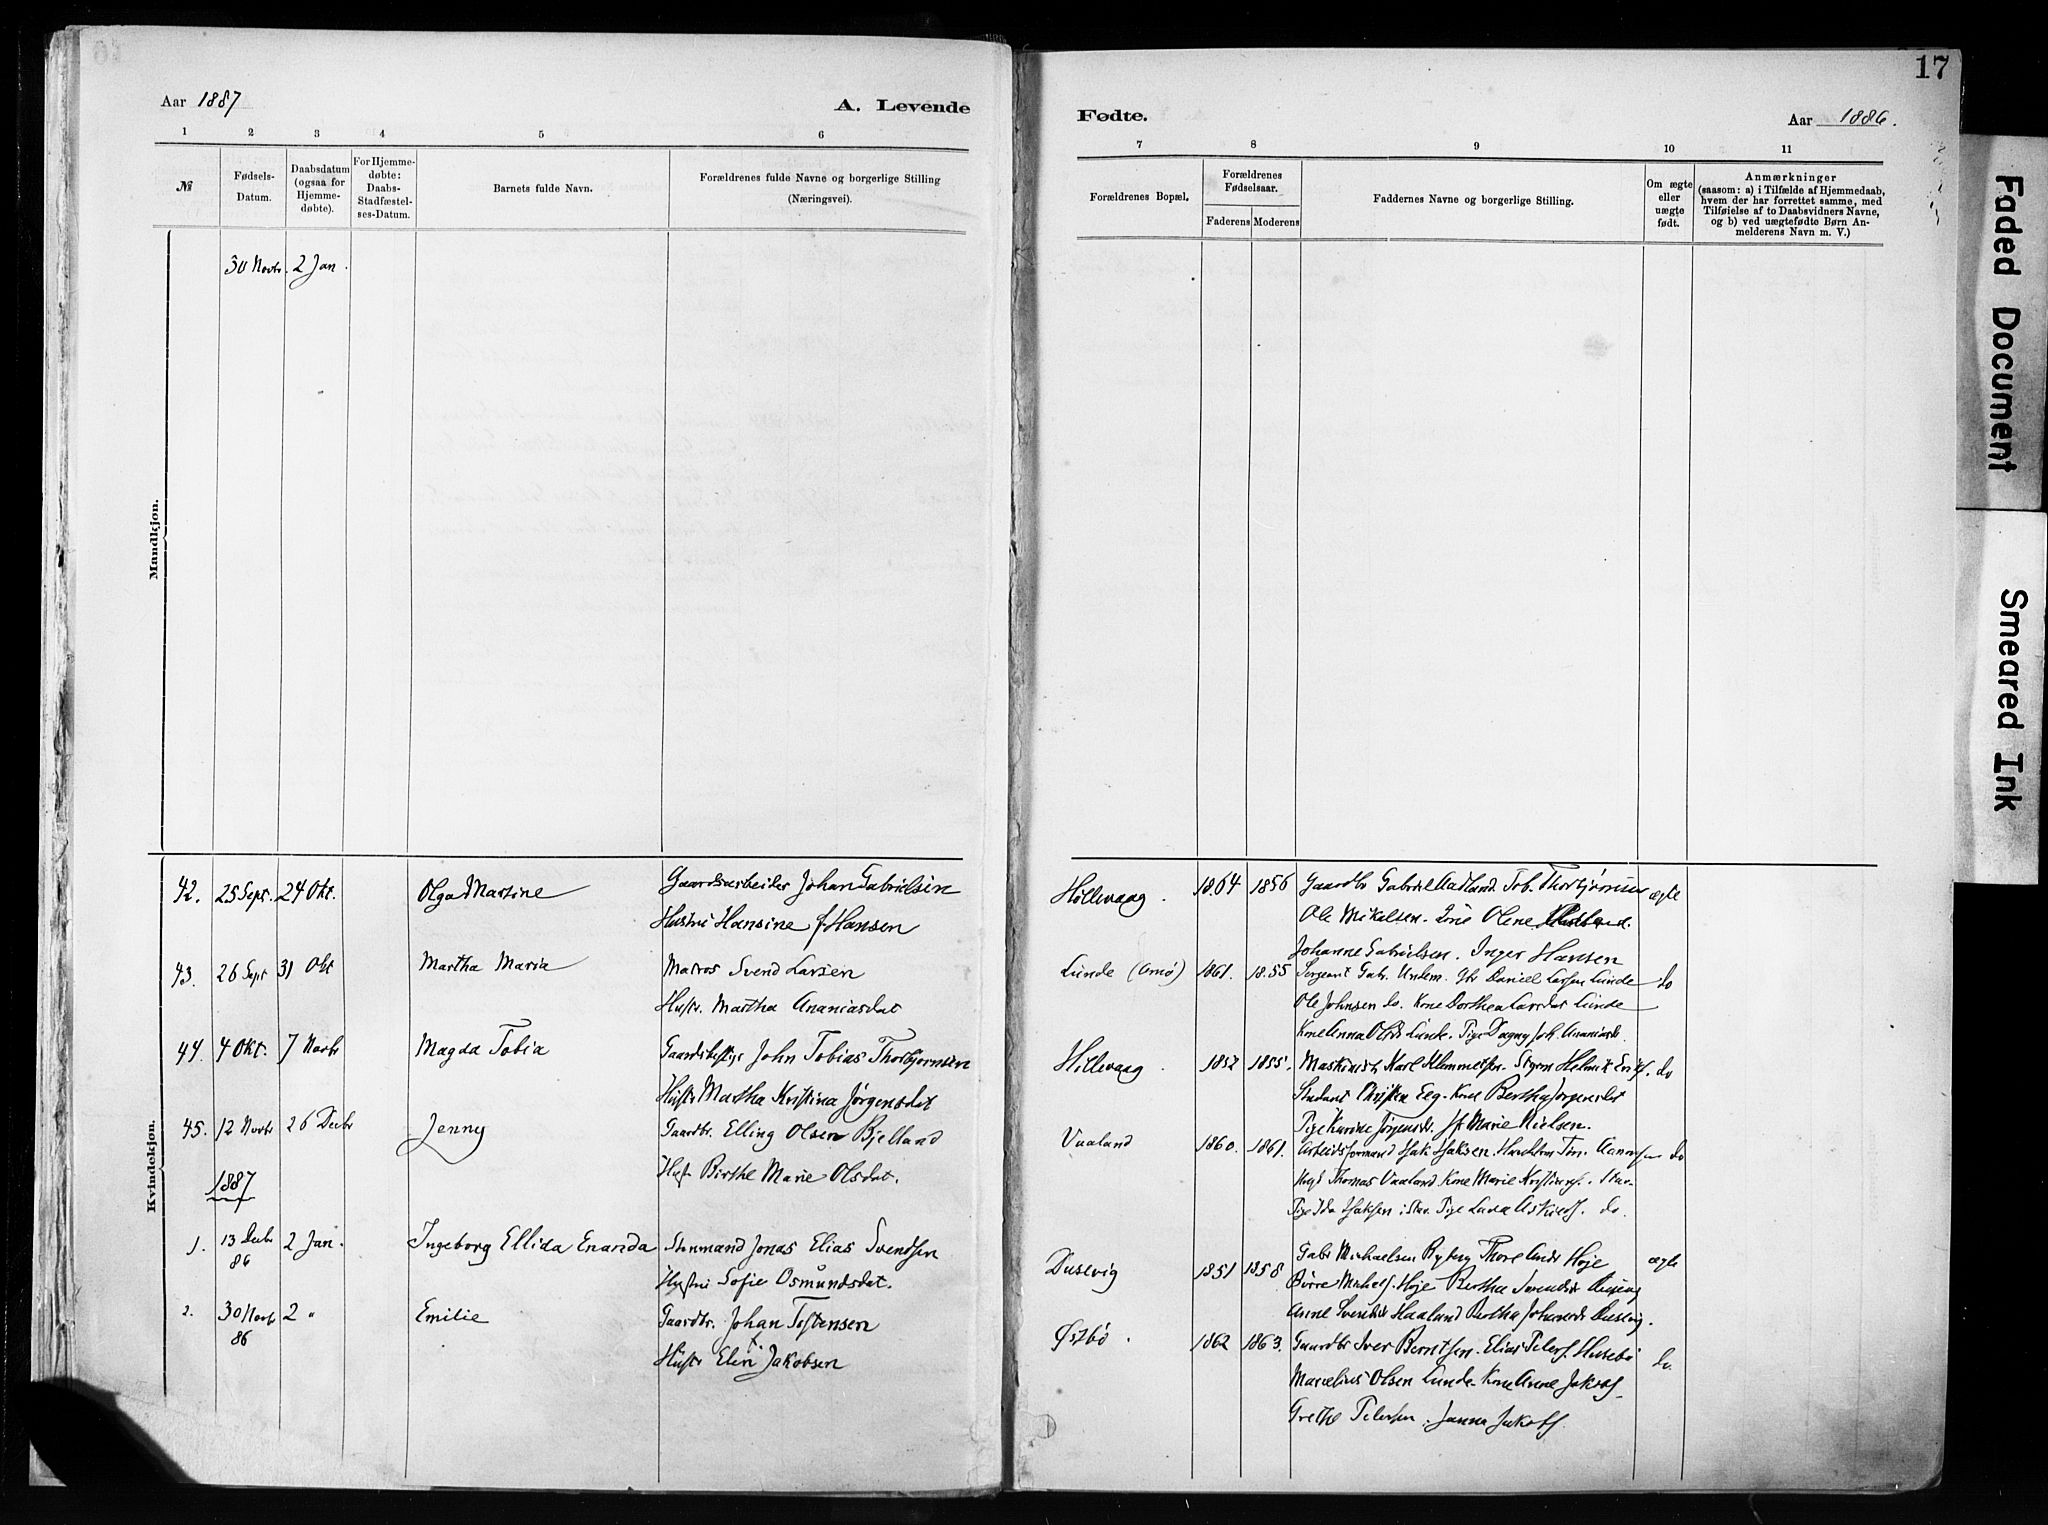 17
Aar 1887
A. Levende
Fødte.
Aar 1886.
1 2 3 4 5 6
7 8 9 10 11
№
Fødsels-
Datum.
Daabsdatum
(ogsaa for
Hjemme-
døbte).
For Hjemme-
døbte:
Daabs-
Stadfæstel-
ses-Datum.
Barnets fulde Navn.
Forældrenes fulde Navne og borgerlige Stilling
(Næringsvei).
Forældrenes Bopæl.
Forældrenes
Fødselsaar.
Faderens Moderens
Faddernes Navne og borgerlige Stilling.
Om ægte
eller
uægte
født.
Anmærkninger
(saasom: a) i Tilfælde af Hjemmedaab,
hvem der har forrettet samme, med
Tilføielse af to Daabsvidners Navne,
og b) ved uægtefødte Børn An-
melderens Navn m. V.)
Mandkjøn.
30 Novbr. 2 Jan.
Kvindekjøn.
42. 25 Sept. 24 Okt. Olga Martine Gaardsarbeider Johan Gabrielsen
Hustru Hansine f Hansen
Hillevaag. 1864 1856 Gaardbr Gabriel Aadland. Tob. Thorbjörnsen ægte
Ole Mikelsen. Olene
Johanne Gabrielsen. Inger Hansen
43. 26 Sept 31 Okt Martha Maria Matros Svend Larsen
Hustr. Martha Ananiasdat
Lunde (Amø) 1861. 1855 Sergeant Gabr. Daniel Larsen Lunde do
Ole Johnsen do. Kone Dorthea Larsdat Lunde
Kone Anna Olsd. Lunde. Pige Dagny
44. 4 Okt. 7 Novbr Magda Tobia John Tobias Thorbjørnsen
Hustr Martha Kristina Jørgensdat
Hillevaag. 1852 1855. Maskinist Karl Klemmetsen. Henrik do
Student Eeg. Kone Bertha Jørgensdat
Pige Karine Jørgensd. Marie Nielsen.
45. 12 Novbr 26 Decbr Jenny Gaardbr. Elling Olsen Bjelland
Hustr Birthe Marie Olsdat.
Vaaland 1860. 1861. Arbeidsformand Isak Isaksen. do
Thomas Vaaland. Kone Marie
Pige Ida Isaksen i Stav. Pige do.
1887
1. 13 Decbr 86 2 Jan. Ingeborg Ellida Enanda Jonas Elias Svendsen
Hustru Sofie Osmundsdat.
Dusevig 1851 1858 Gabr Michaelsen Ryberg Thore Ands Høje ægte
Børre Michels. Høje Bertha Svendsd.
Anne Svendsd. Haaland Bertha Johannesd. Dusevig.
2. 30 Novbr 86 2 " Emilie Gaardbr. Johan Tostensen
Hustr Elen Jakobsen
Østbø. 1862 1863. Gaardbr Iver Berntsen. Elias Peters. Husebø do
Marselius Olsen Lunde. Kone Anne Jakobs.
Grethe Petersen. Janna Jakobs.
Faded Document
Smeared Ink